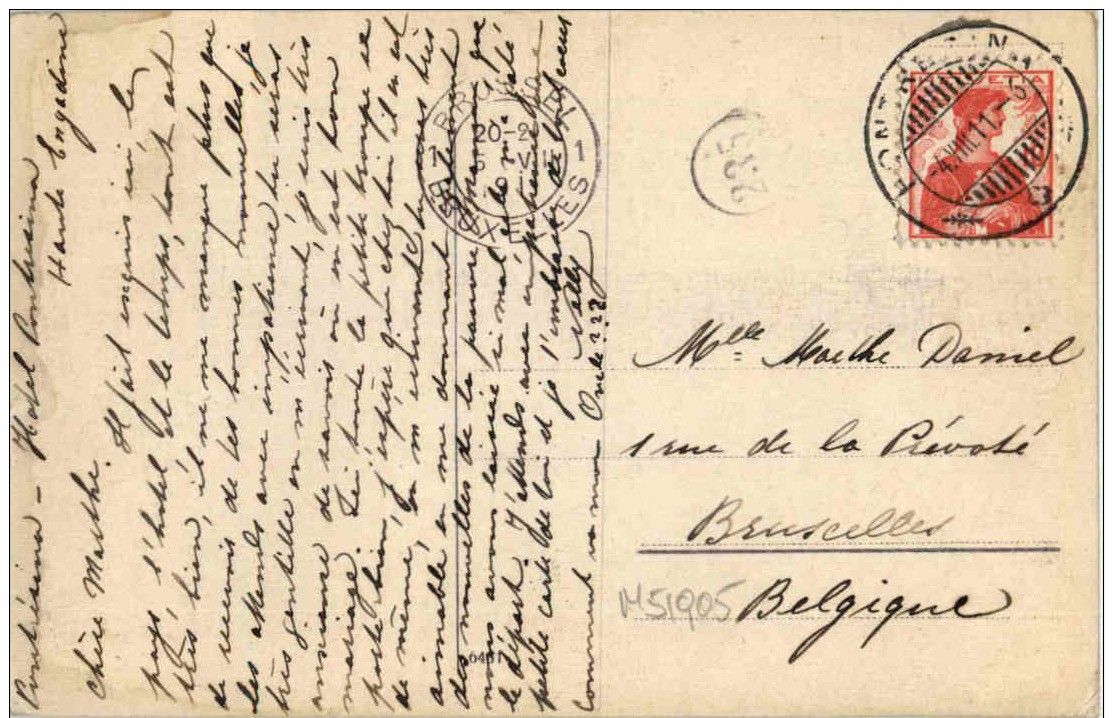 Pontrésina – Hotel Pontrésina
Haute Engadine
Chère Marthe. Il fait exquis ici, le
pays, l'hotel et le temps, tout est
très bien, il ne me manque plus que
de recevoir de tes bonnes nouvelles, je
les attends avec impatience tu seras
très gentille en m'écrivant, je suis très
anxieuse de savoir où en est ton
mariage. Ici toute la petite troupe se
porte bien, j'espère que chez toi il en est
de même,
aimable en me donnant
des nouvelles de la pauvre que
nous avons laissée si mal
le départ. J'attends avec impatience une
petite carte de toi et je t'embrasse de tout cœur
Nelly
Comment va mon Oncle???
BRUXELLES
1 1
20-21
5 VIII
235
PONTRESINA
-4.VIII.11.-8
HELVETIA
Melle Marthe Daniel
1 rue de la Prévoté
Bruxelles
Belgique
M51905
0437